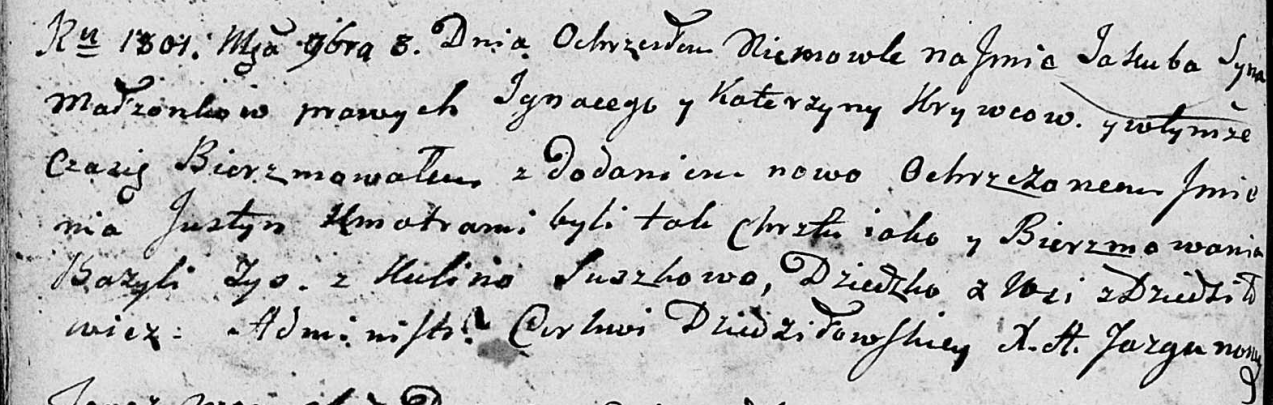 Ru 1801. Mca 9bra 8. Dnia Ochrzciłem Niemowle na Jmie Jakuba Syna
Małzonkow prawych Jgnacego y Katerzyny Krywcow. y wtymże
Czasie Bierzmowałem z dodaniem nowo Ochrzczonemu Jmie
nia Justyn Kmotrami byli tak Chrztu iako y Bierzmowania
Bazyli Zys. z Kulino Suszkowo, Dziedzko z Wsi zDziedziło
wicz: Administr: Cerkwi Dziedziłowskiey X. A. Jazgunowy